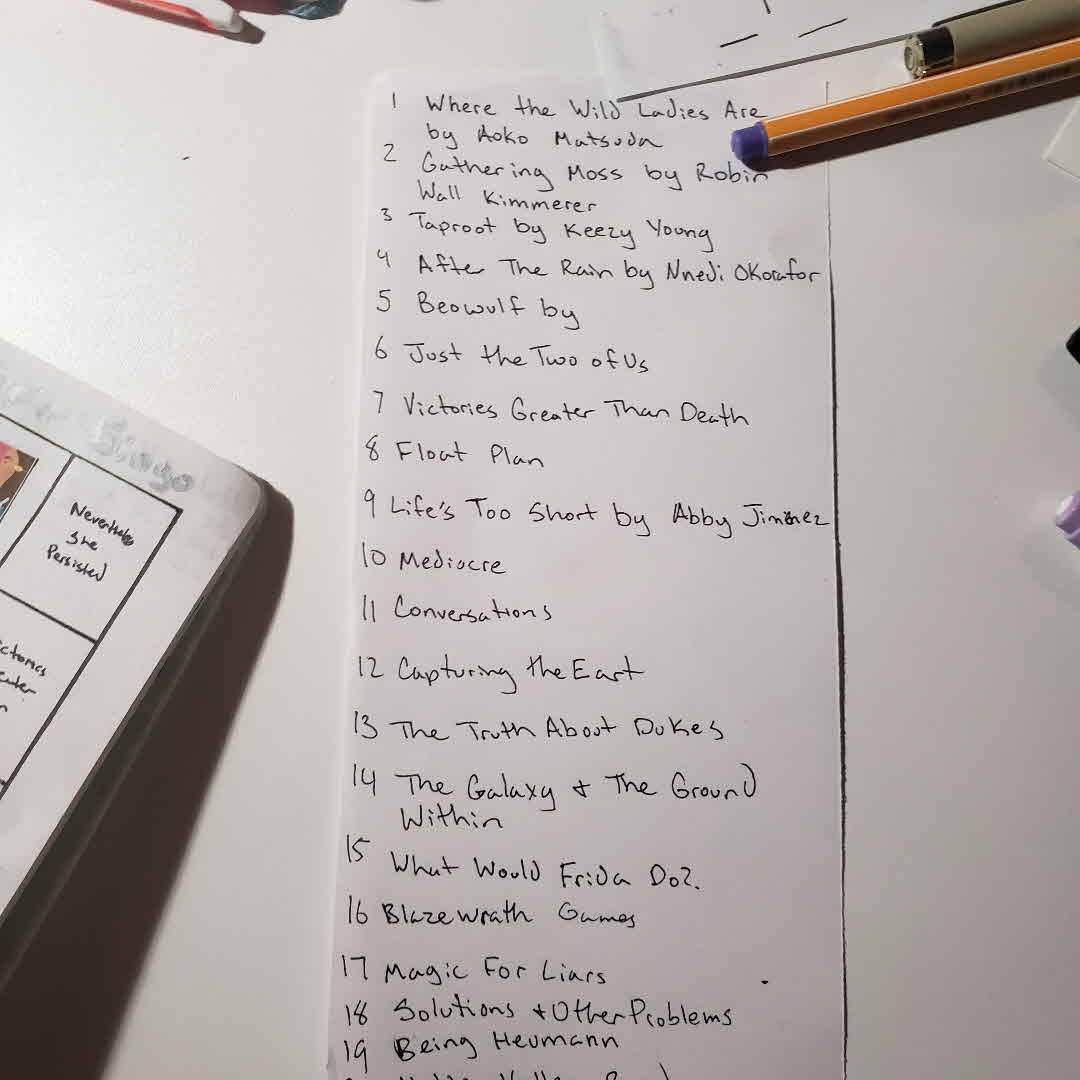 Bingo
Nevertheless
She
Persisted
1 Where the Wild Ladies Are
by Aoko Matsuda
2 Gathering Moss by Robin
Wall Kimmerer
3 Taproot by Keezy Young
4 After The Rain by Nnedi Okorafor
5 Beowulf by
6 Just the Two of Us
7 Victories Greater Than Death
8 Float Plan
9 Life's Too Short by Abby Jiminez
10 Mediocre
11 Conversations
12 Capturing the Eart
13 The Truth About Dukes
14 The Galaxy + The Ground
Within
15 What Would Frida Do?.
16 Blazewrath Games
17 Magic For Liars
18 Solutions + Other Problems
19 Being Heumann